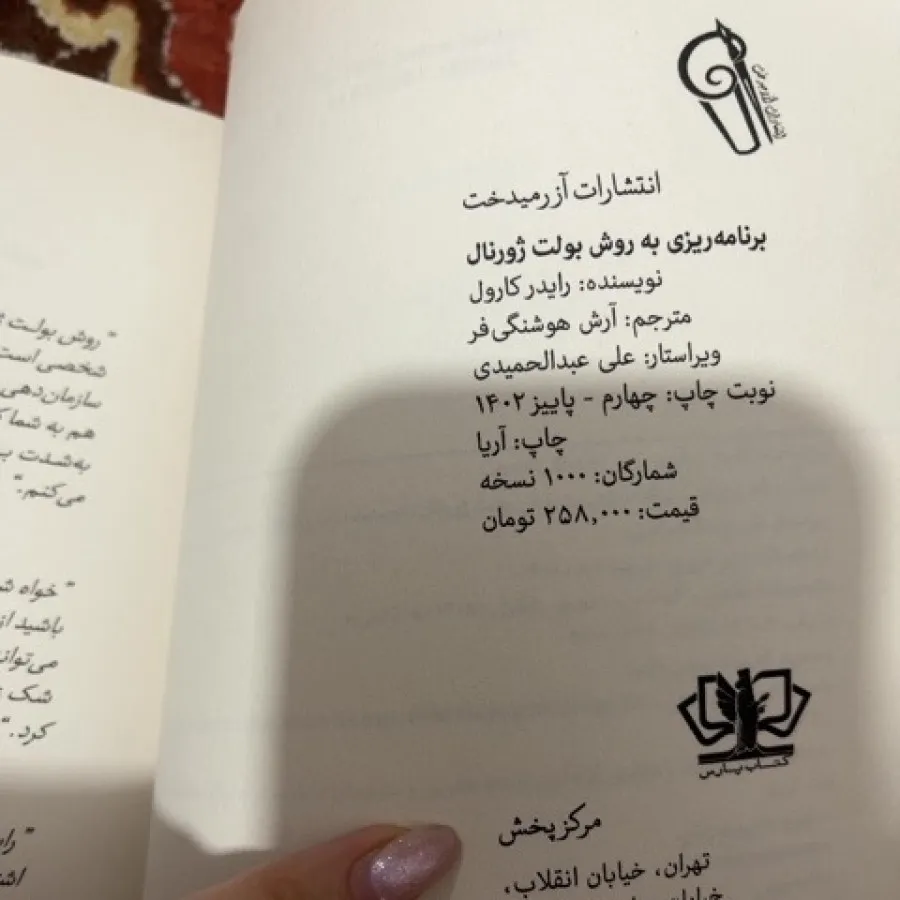 انتشارات آزرمیدخت
برنامه‌ریزی به روش بولت ژورنال
نویسنده: رایدر کارول
مترجم: آرش هوشنگی‌فر
ویراستار: علی عبدالحمیدی
نوبت چاپ: چهارم - پاییز ۱۴۰۲
چاپ: آریا
شمارگان: ۱۰۰۰ نسخه
قیمت: ۲۵۸,۰۰۰ تومان
کتاب پارس
مرکز پخش
تهران، خیابان انقلاب،
خیابان
" روش بولت
شخصی است
سازمان‌دهی
هم به شما
به‌شدت
می‌کنم."
" خواه
باشید از
شک
کرد."